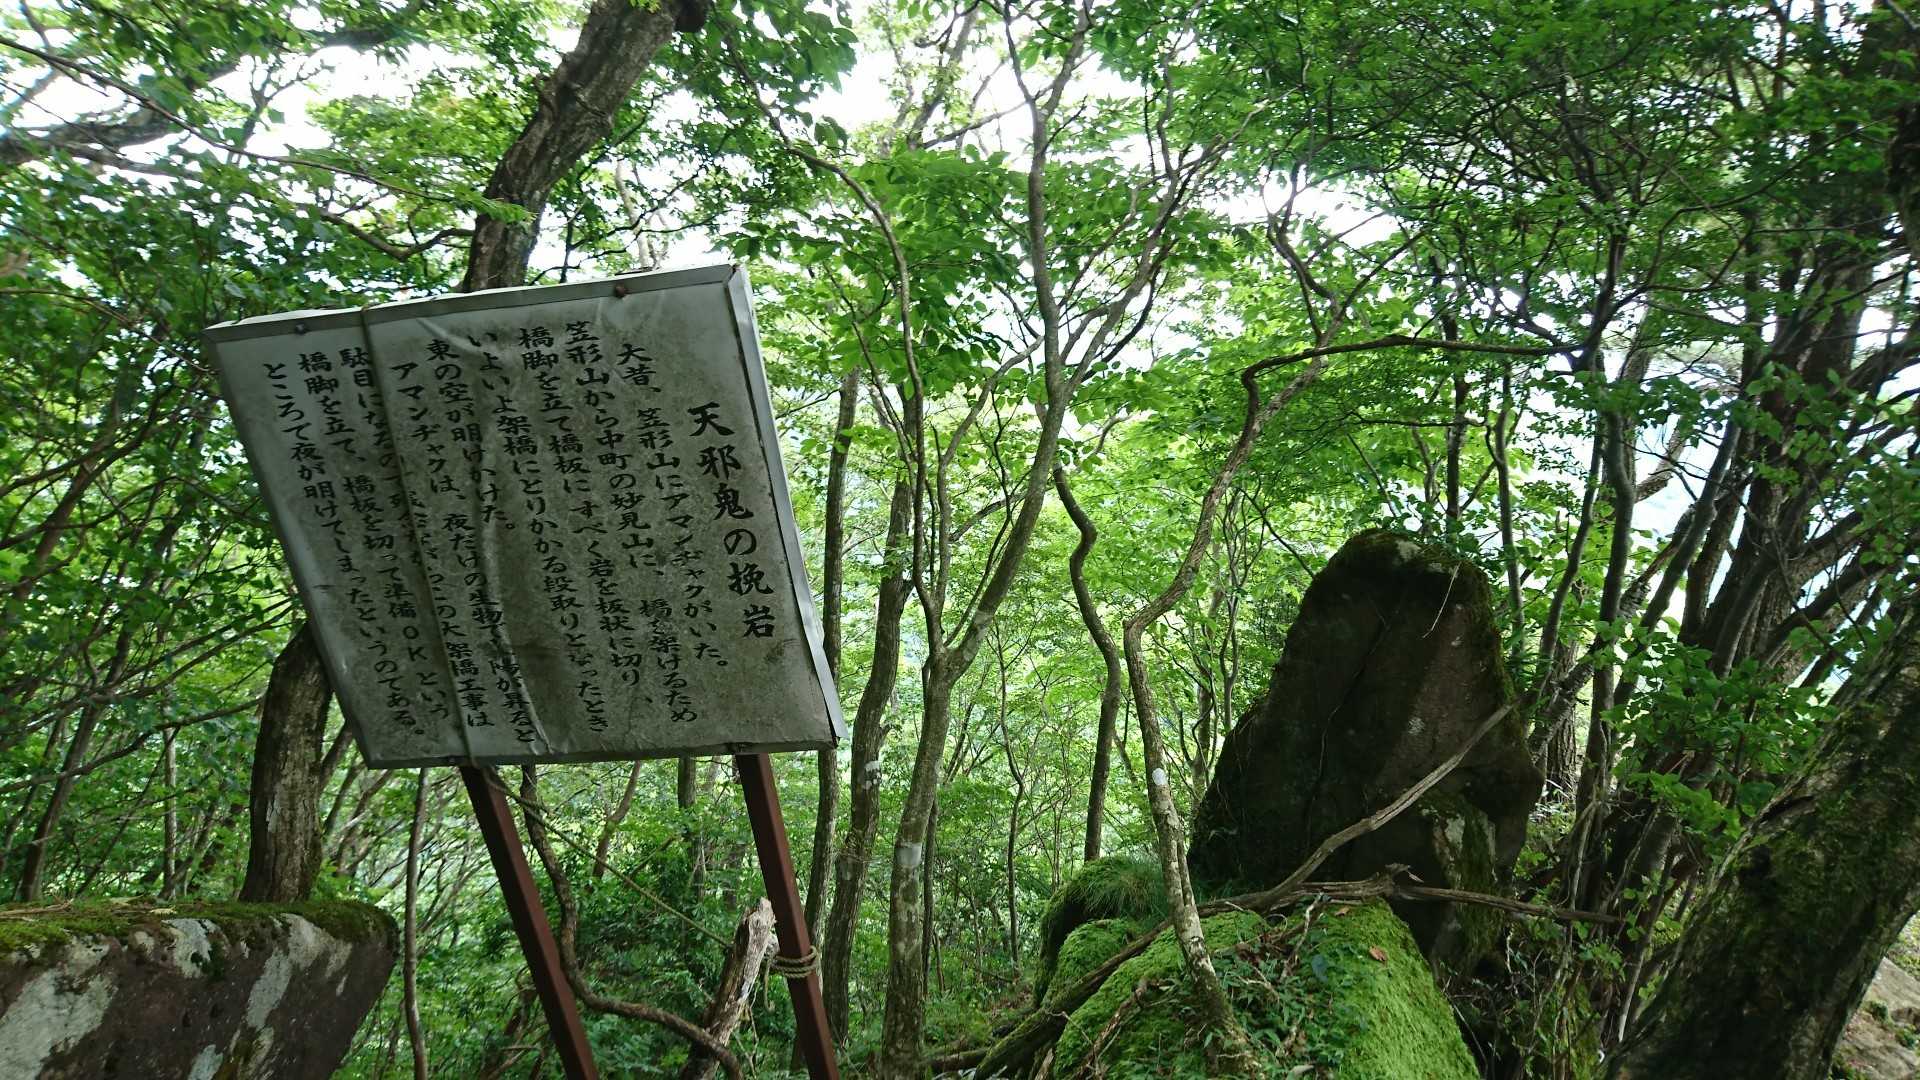 天邪鬼の挽岩
大昔、笠形山にアマンヂャクがいた。
笠形山から中町の妙見山に、橋を架けるため
橋脚を立て橋板にすべく岩を板状に切り、
いよいよ架橋にとりかかる段取りとなったとき
東の空が明けかけた。
アマンヂャクは、夜だけの生物で、陽が昇ると
駄目になるので残念ながらこの大架橋工事は
橋脚を立て、橋板を切って準備OKという
ところで夜が明けてしまったというのである。